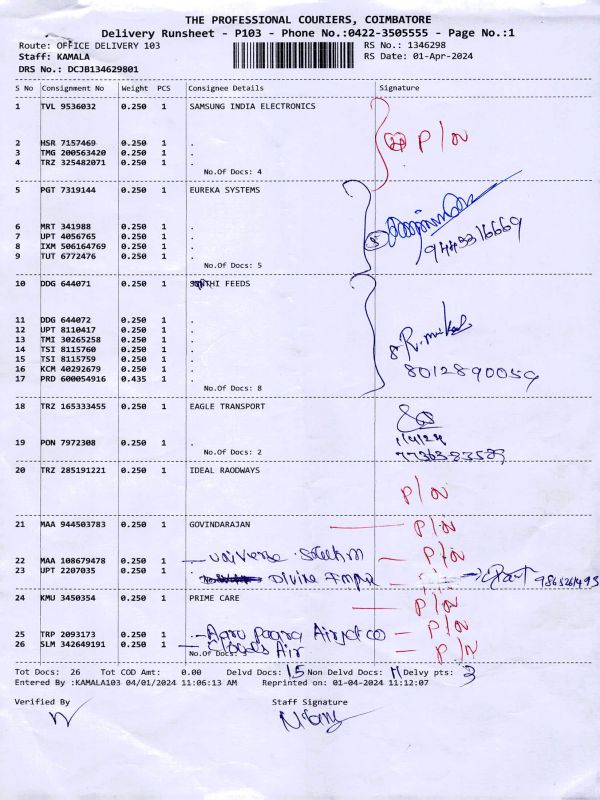 THE PROFESSIONAL COURIERS, COIMBATORE
Delivery Runsheet - P103 - Phone No.:0422-3505555 - Page No.:1
Route: OFFICE DELIVERY 103 RS No.: 1346298
Staff: KAMALA RS Date: 01-Apr-2024
DRS No.: DCJB134629801
S No Consignment No Weight PCS Consignee Details Signature
1 TVL 9536032 0.250 1 SAMSUNG INDIA ELECTRONICS
P/N
2 HSR 7157469 0.250 1 .
3 TMG 200563420 0.250 1 .
4 TRZ 325482071 0.250 1 .
No.Of Docs: 4
5 PGT 7319144 0.250 1 EUREKA SYSTEMS
6 MRT 341988 0.250 1 .
7 UPT 4056765 0.250 1 .
8 IXM 506164769 0.250 1 . 5 9443316669
9 TUT 6772476 0.250 1 .
No.Of Docs: 5
10 DDG 644071 0.250 1 FEEDS
11 DDG 644072 0.250 1 .
12 UPT 8110417 0.250 1 .
13 TMI 30265258 0.250 1 .
14 TSI 8115760 0.250 1 . 8
15 TSI 8115759 0.250 1 .
16 KCM 40292679 0.250 1 . 8012890059
17 PRD 600054916 0.435 1 .
No.Of Docs: 8
18 TRZ 165333455 0.250 1 EAGLE TRANSPORT
19 PON 7972308 0.250 1 . 1/4/24
No.Of Docs: 2 7736383589
20 TRZ 285191221 0.250 1 IDEAL RAODWAYS
P/N
21 MAA 944503783 0.250 1 GOVINDARAJAN P/N
22 MAA 108679478 0.250 1 Universe P/N
23 UPT 2207035 0.250 1 Divine
24 KMU 3450354 0.250 1 PRIME CARE P/N
25 TRP 2093173 0.250 1 . P/N
26 SLM 342649191 0.250 1 Air P/N
No.Of Docs: 3
Tot Docs: 26 Tot COD Amt: 0.00 Delvd Docs: 15 Non Delvd Docs: 11 Delvy pts: 3
Entered By :KAMALA103 04/01/2024 11:06:13 AM Reprinted on: 01-04-2024 11:12:07
Verified By Staff Signature